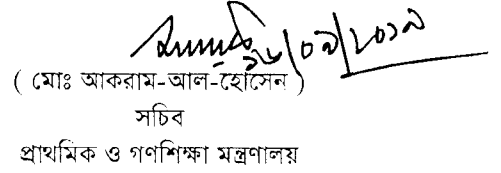 ১৬/০৯/২০১৯
( মোঃ আকরাম-আল-হোসেন )
সচিব
প্রাথমিক ও গণশিক্ষা মন্ত্রণালয়